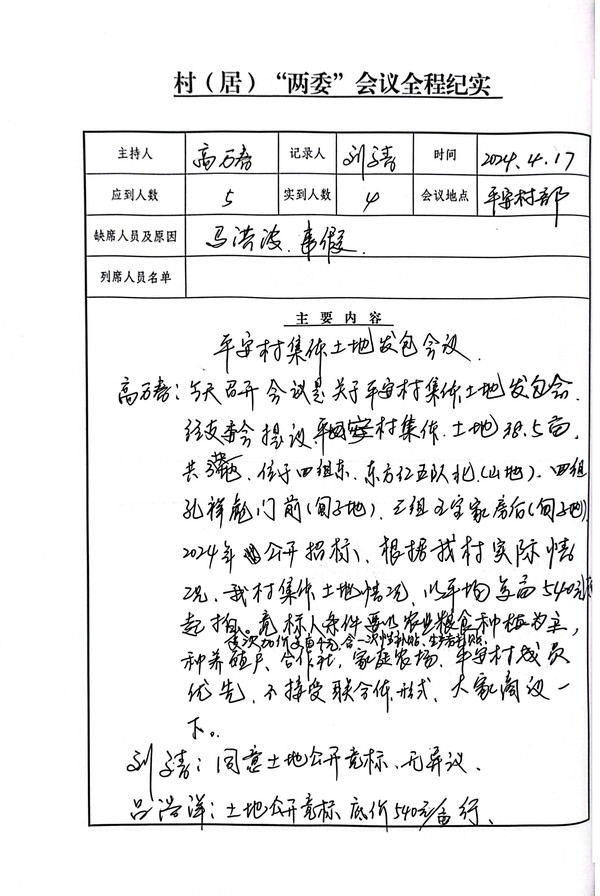 村（居）“两委”会议全程纪实
主持人 高万春 记录人 刘清 时间 2024.4.17
应到人数 5 实到人数 4 会议地点 平安村部
缺席人员及原因 马洪波、事假.
列席人员名单
主要内容
平安村集体土地发包会议.
高万春：今天召开会议是关于平安村集体土地发包会.
经支委会提议, 平安村集体土地38.5亩,
共3 位于四组东、东方红五队北(山地)、四组
孔祥彪门前(甸子地)、三组王宝家房后(甸子地)
2024年 公开招标、根据我村实际情
况、我村集体土地情况, 以平均每亩540元
起拍。竞标人条件要以农业粮食种植为主,
每次加价 百元, 含一次性补贴、生产者补贴.
种养殖户、合作社, 家庭农场、平安村成员
优先、不接受联合体形式、大家商议一
下。
刘清：同意土地公开竞标、无异议、
吕洪洋：土地公开竞标 底价540元/亩行、